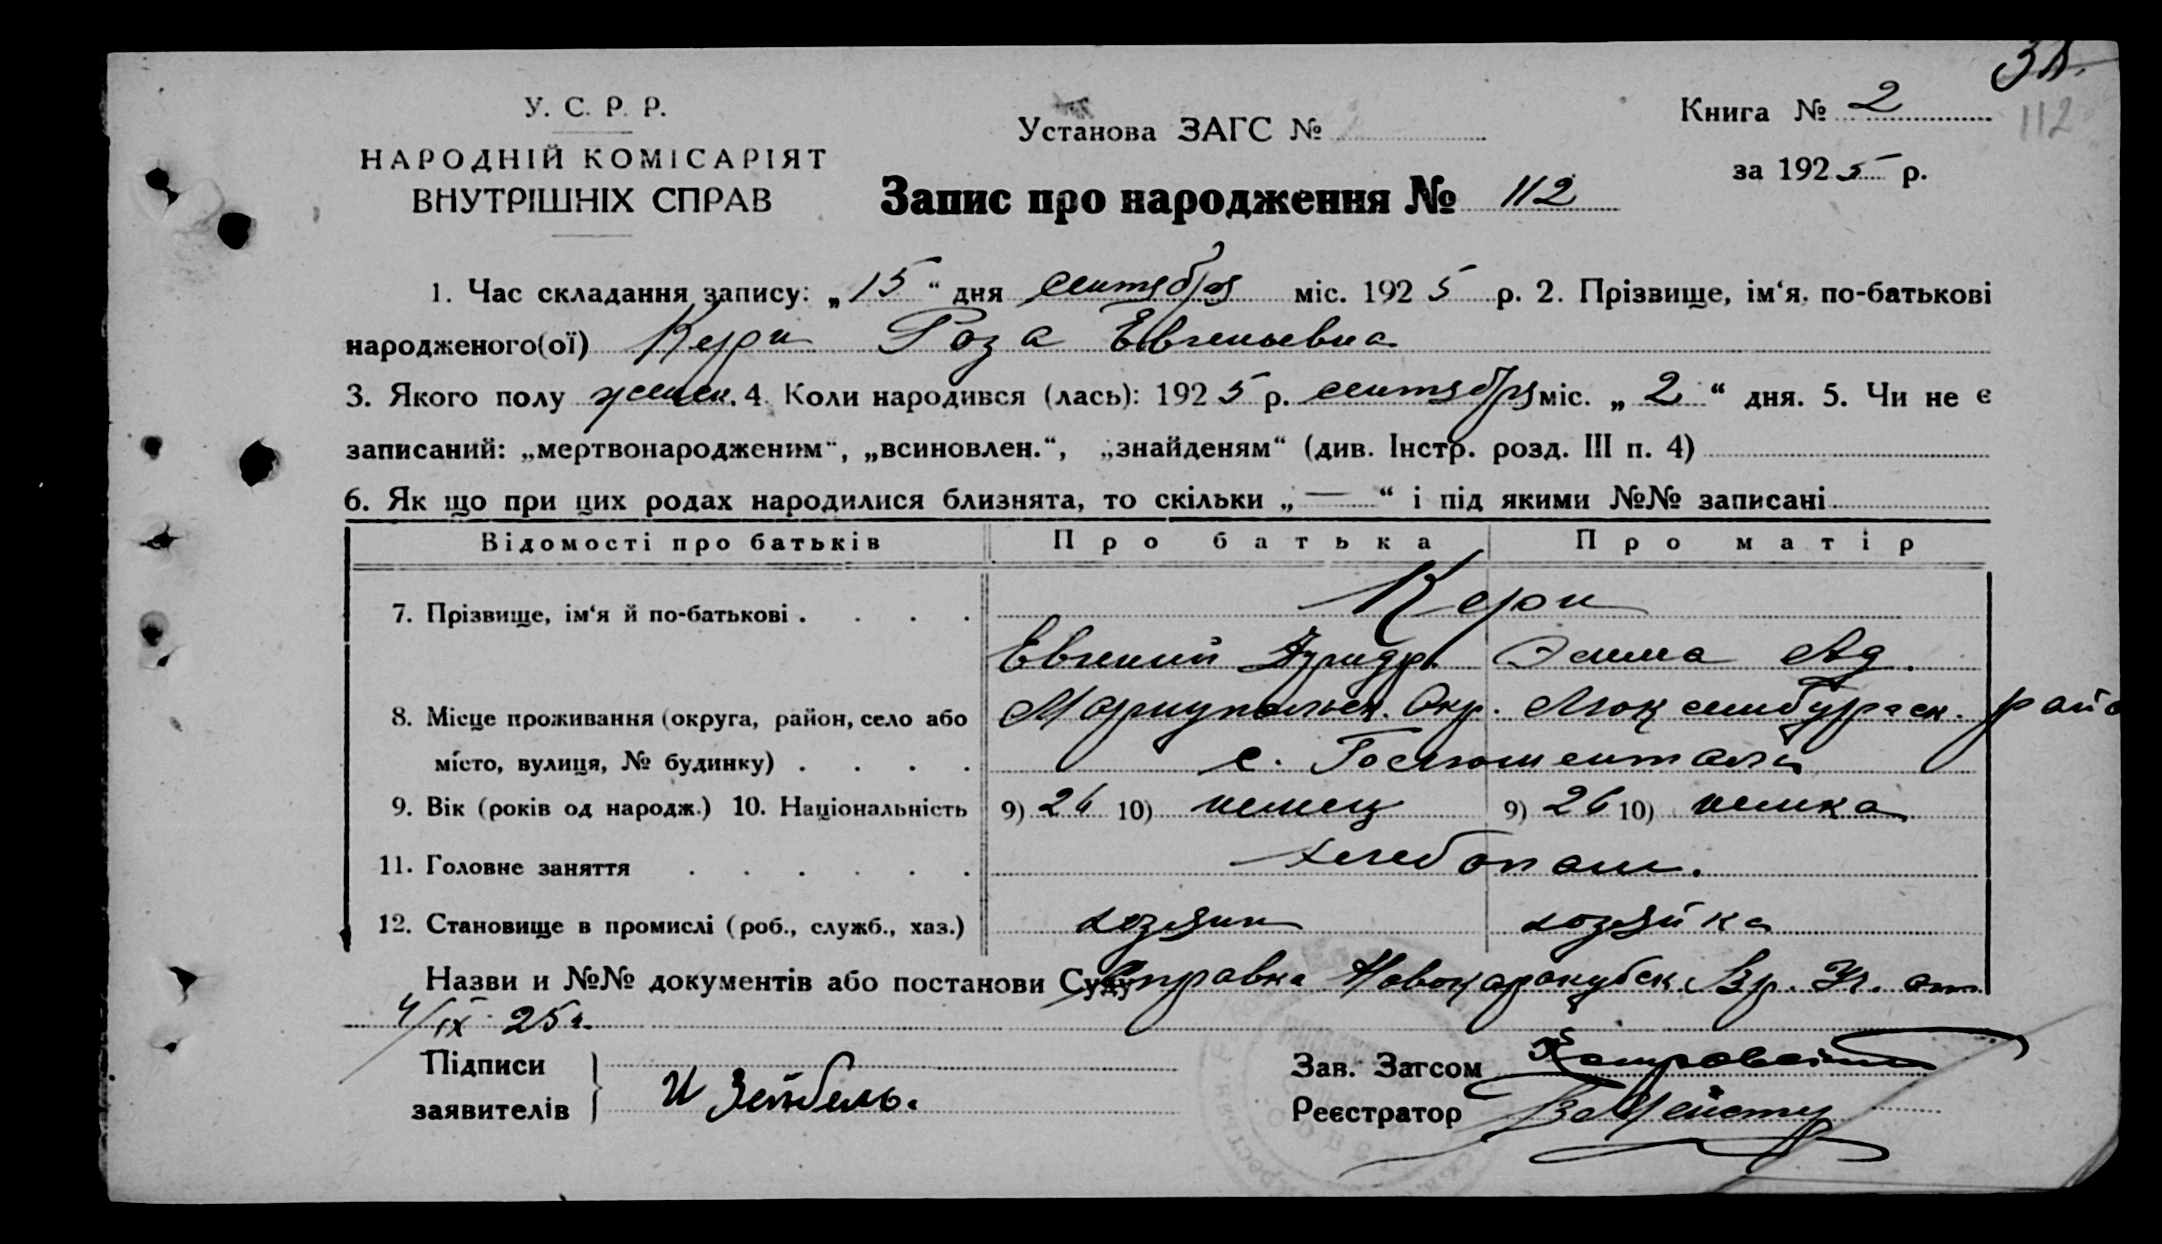 У. С. Р. Р.
НАРОДНІЙ КОМІСАРІЯТ
ВНУТРІШНІХ СПРАВ
Установа ЗАГС №
Запис про народження № 112
Книга № 2
112
за 1925 р.
1. Час складання запису: „15“ дня сентября міс. 1925 р. 2. Прізвище, ім‘я, по-батькові
народженого(ої) Керн Роза Евгеньевна
3. Якого полу женск. 4. Коли народився (лась): 1925 р. сентября міс. „2“ дня. 5. Чи не є
записаний: „мертвонародженим“, „всиновлен.“, „знайденям“ (див. Інстр. розд. III п. 4)
6. Як що при цих родах народилися близнята, то скільки „—“ і під якими №№ записані
Відомості про батьків Про батька Про матір
7. Прізвище, ім‘я й по-батькові . . . . Керн
Евгений Эмма Ад.
8. Місце проживання (округа, район, село або Мариупольск. Окр. Люксембургск. райо
місто, вулиця, № будинку) . . . . с.
9. Вік (років од народж.) 10. Національність 9) 26 10) немец 9) 26 10) немка
11. Головне заняття . . . . . . хлебопаш.
12. Становище в промислі (роб., служб., хаз.) хозяин хозяйка
Назви и №№ документів або постанови Суду Справка Новокаракубск. Вр. Уч. от
4/IX 25 г.
Підписи
заявителів И Зейбель.
Зав. Загсом
Реєстратор